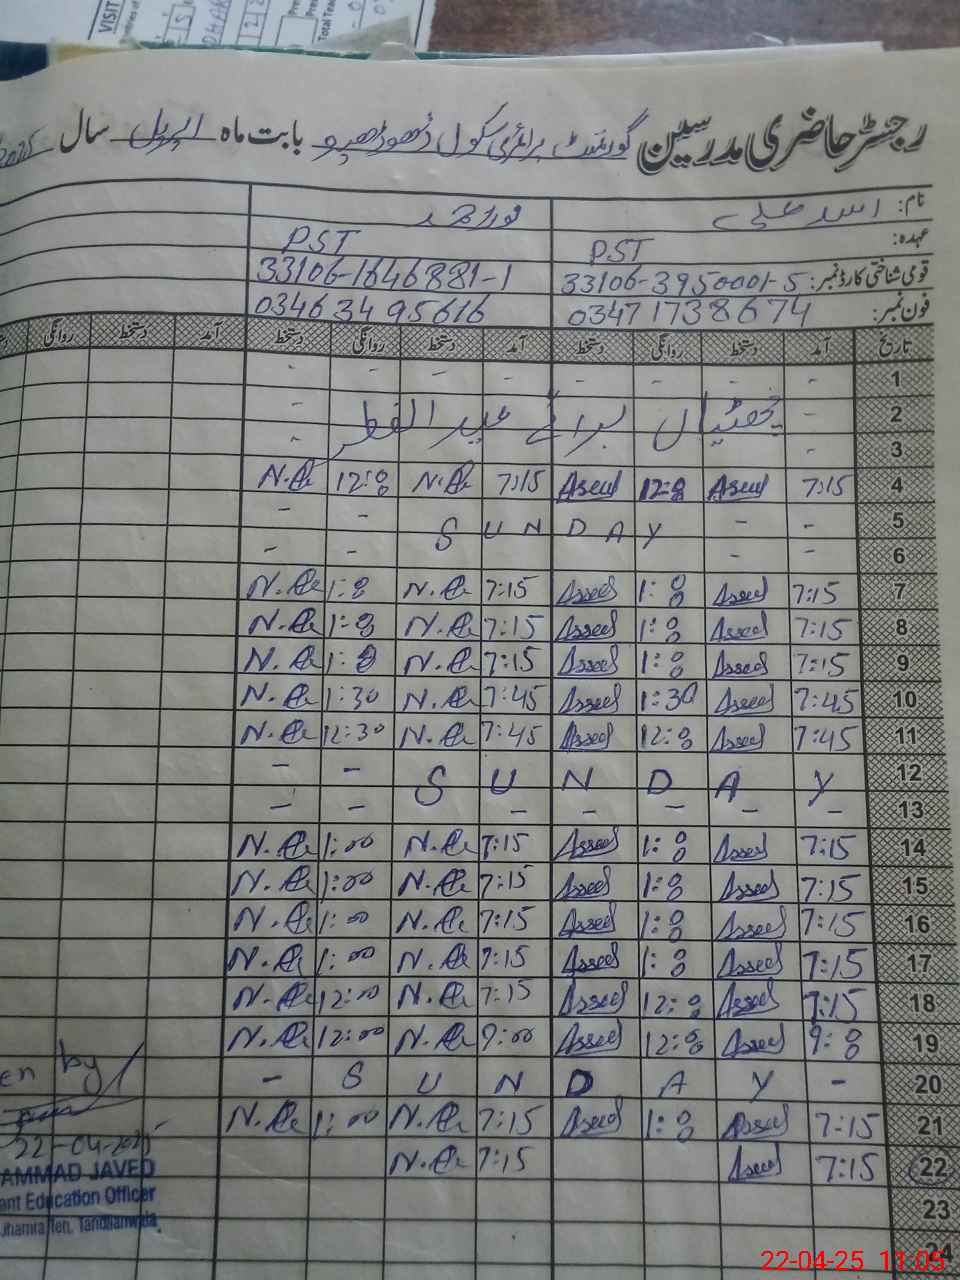 VISIT
رجسٹر حاضری مدرسین گورنمنٹ پرائمری سکول ڈھوڈھیو بابت ماہ اپریل سال 2025
نام: اسد علی نور احمد
عہدہ: PST PST
قومی شناختی کارڈ نمبر: 33106-3950001-5 33106-1646881-1
فون نمبر: 03471738674 03463495616
تاریخ آمد دستخط روانگی دستخط آمد دستخط روانگی دستخط آمد دستخط روانگی
1 - - - - - - - -
2 - چھٹیاں برائے عید الفطر -
3 - -
4 7:15 Aseed 12:00 Aseed 7:15 N.A 12:00 N.A
5 - - SUNDAY - -
6 - - - -
7 7:15 Aseed 1:00 Aseed 7:15 N.A 1:00 N.A
8 7:15 Aseed 1:00 Aseed 7:15 N.A 1:00 N.A
9 7:15 Aseed 1:00 Aseed 7:15 N.A 1:00 N.A
10 7:45 Aseed 1:30 Aseed 7:45 N.A 1:30 N.A
11 7:45 Aseed 12:00 Aseed 7:45 N.A 12:30 N.A
12 SUNDAY - -
13 - - - - - - -
14 7:15 Aseed 1:00 Aseed 7:15 N.A 1:00 N.A
15 7:15 Aseed 1:00 Aseed 7:15 N.A 1:00 N.A
16 7:15 Aseed 1:00 Aseed 7:15 N.A 1:00 N.A
17 7:15 Aseed 1:00 Aseed 7:15 N.A 1:00 N.A
18 7:15 Aseed 12:00 Aseed 7:15 N.A 12:00 N.A
19 9:00 Aseed 12:00 Aseed 9:00 N.A 12:00 N.A
20 - SUNDAY -
21 7:15 Aseed 1:00 Aseed 7:15 N.A 1:00 N.A
22 7:15 Aseed 7:15 N.A
23
24
en by
22-04-2025
AMMAD JAVED
ant Education Officer
Jhamra Teh. Tandlianwala
22-04-25 11:05